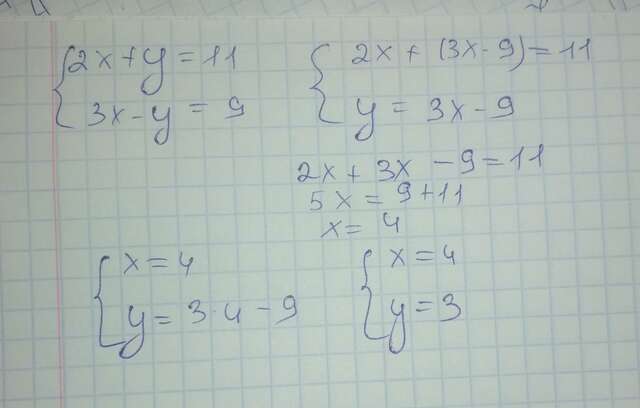 2x+y=11
3x-y=9
2x+(3x-9)=11
y=3x-9
2x+3x-9=11
5x=9+11
x=4
x=4
y=3·4-9
x=4
y=3